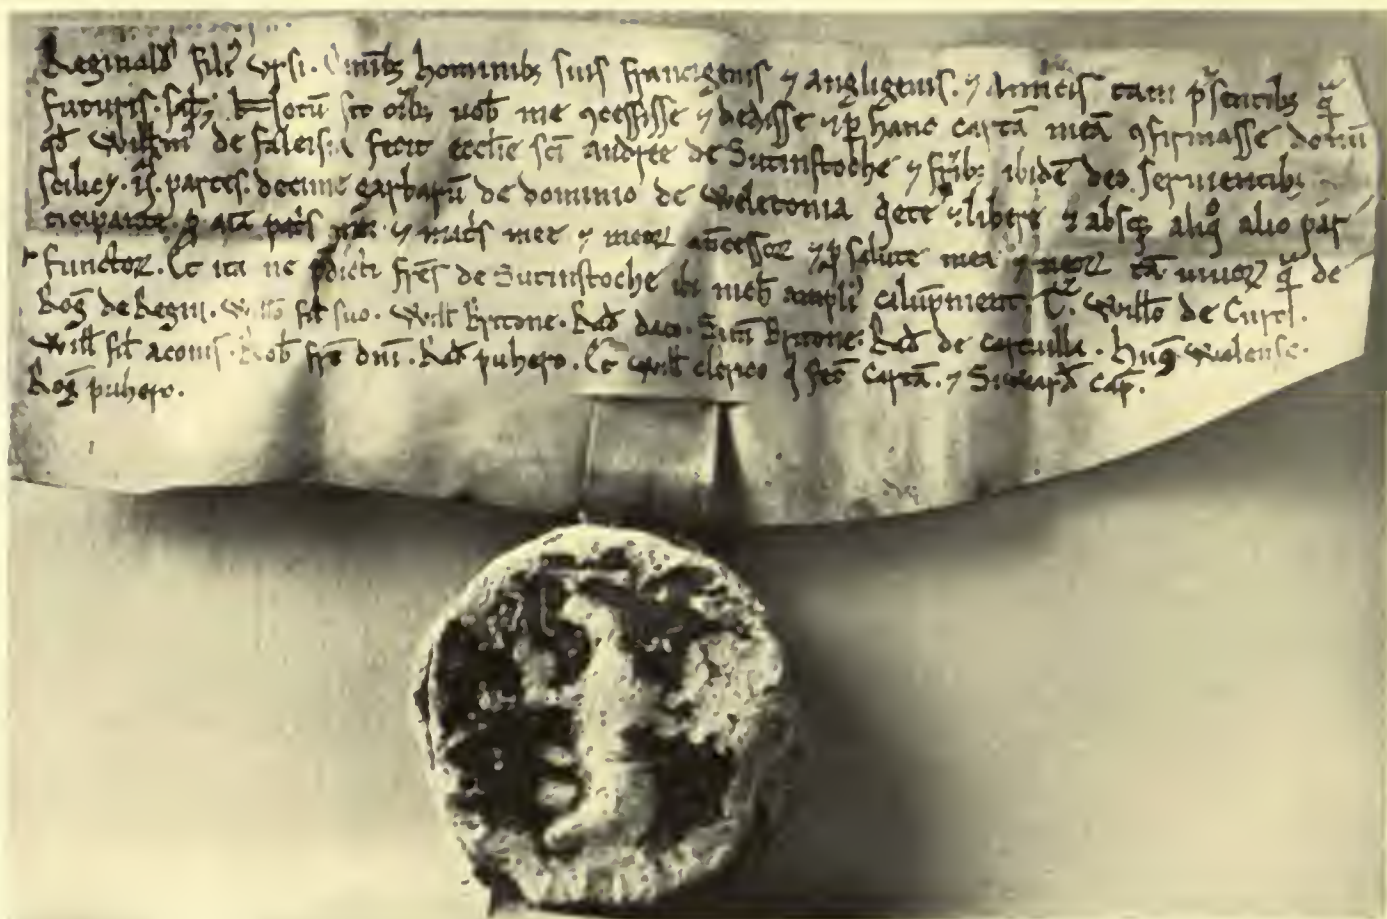 Reginald' fili' Vrsi. Omĩbȝ hominibȝ suis francigenis ⁊ angligenis. ⁊ Amicis tam p'sentibȝ q̃
futuris. Sal'. Notũ sit oĩbȝ uob' me ꝯcessisse ⁊ dedisse ⁊ p̱ hanc cartã meã ꝯfirmasse donũ
qd' Willm' de faleisia fecit eccl'ie sc̃i andree de Sutinstoche ⁊ fr̃ibȝ ibidẽ deo seruientibȝ
scilicȝ. ii. partes. decime garbarũ de dominio de Weletonia ⁊ libere ⁊ absqȝ aliq° alio par
ticipante. p̱ aĩa pat's ⁊ mat's mee ⁊ meoꝝ añcessoꝝ ⁊ p̱ salute mea ⁊ meoꝝ tã uiuoꝝ q̃ de
functoꝝ. Et ita ne p̃dicti fr̃es de Sutinstoche ibi ampli' T'. Will'o de Curci.
Rog' de Regni. Will'o fil' suo. Will' Britone. Rad' daco. Sim' Britone. Rad' de carduilla. Hug' Walense.
Will' fil' aconis. Rob' fr̃e dñi. Rad' puhero. Et Will' cl'erico q' fec' cartã. ⁊ Siward' cap'.
Rog' puhero.